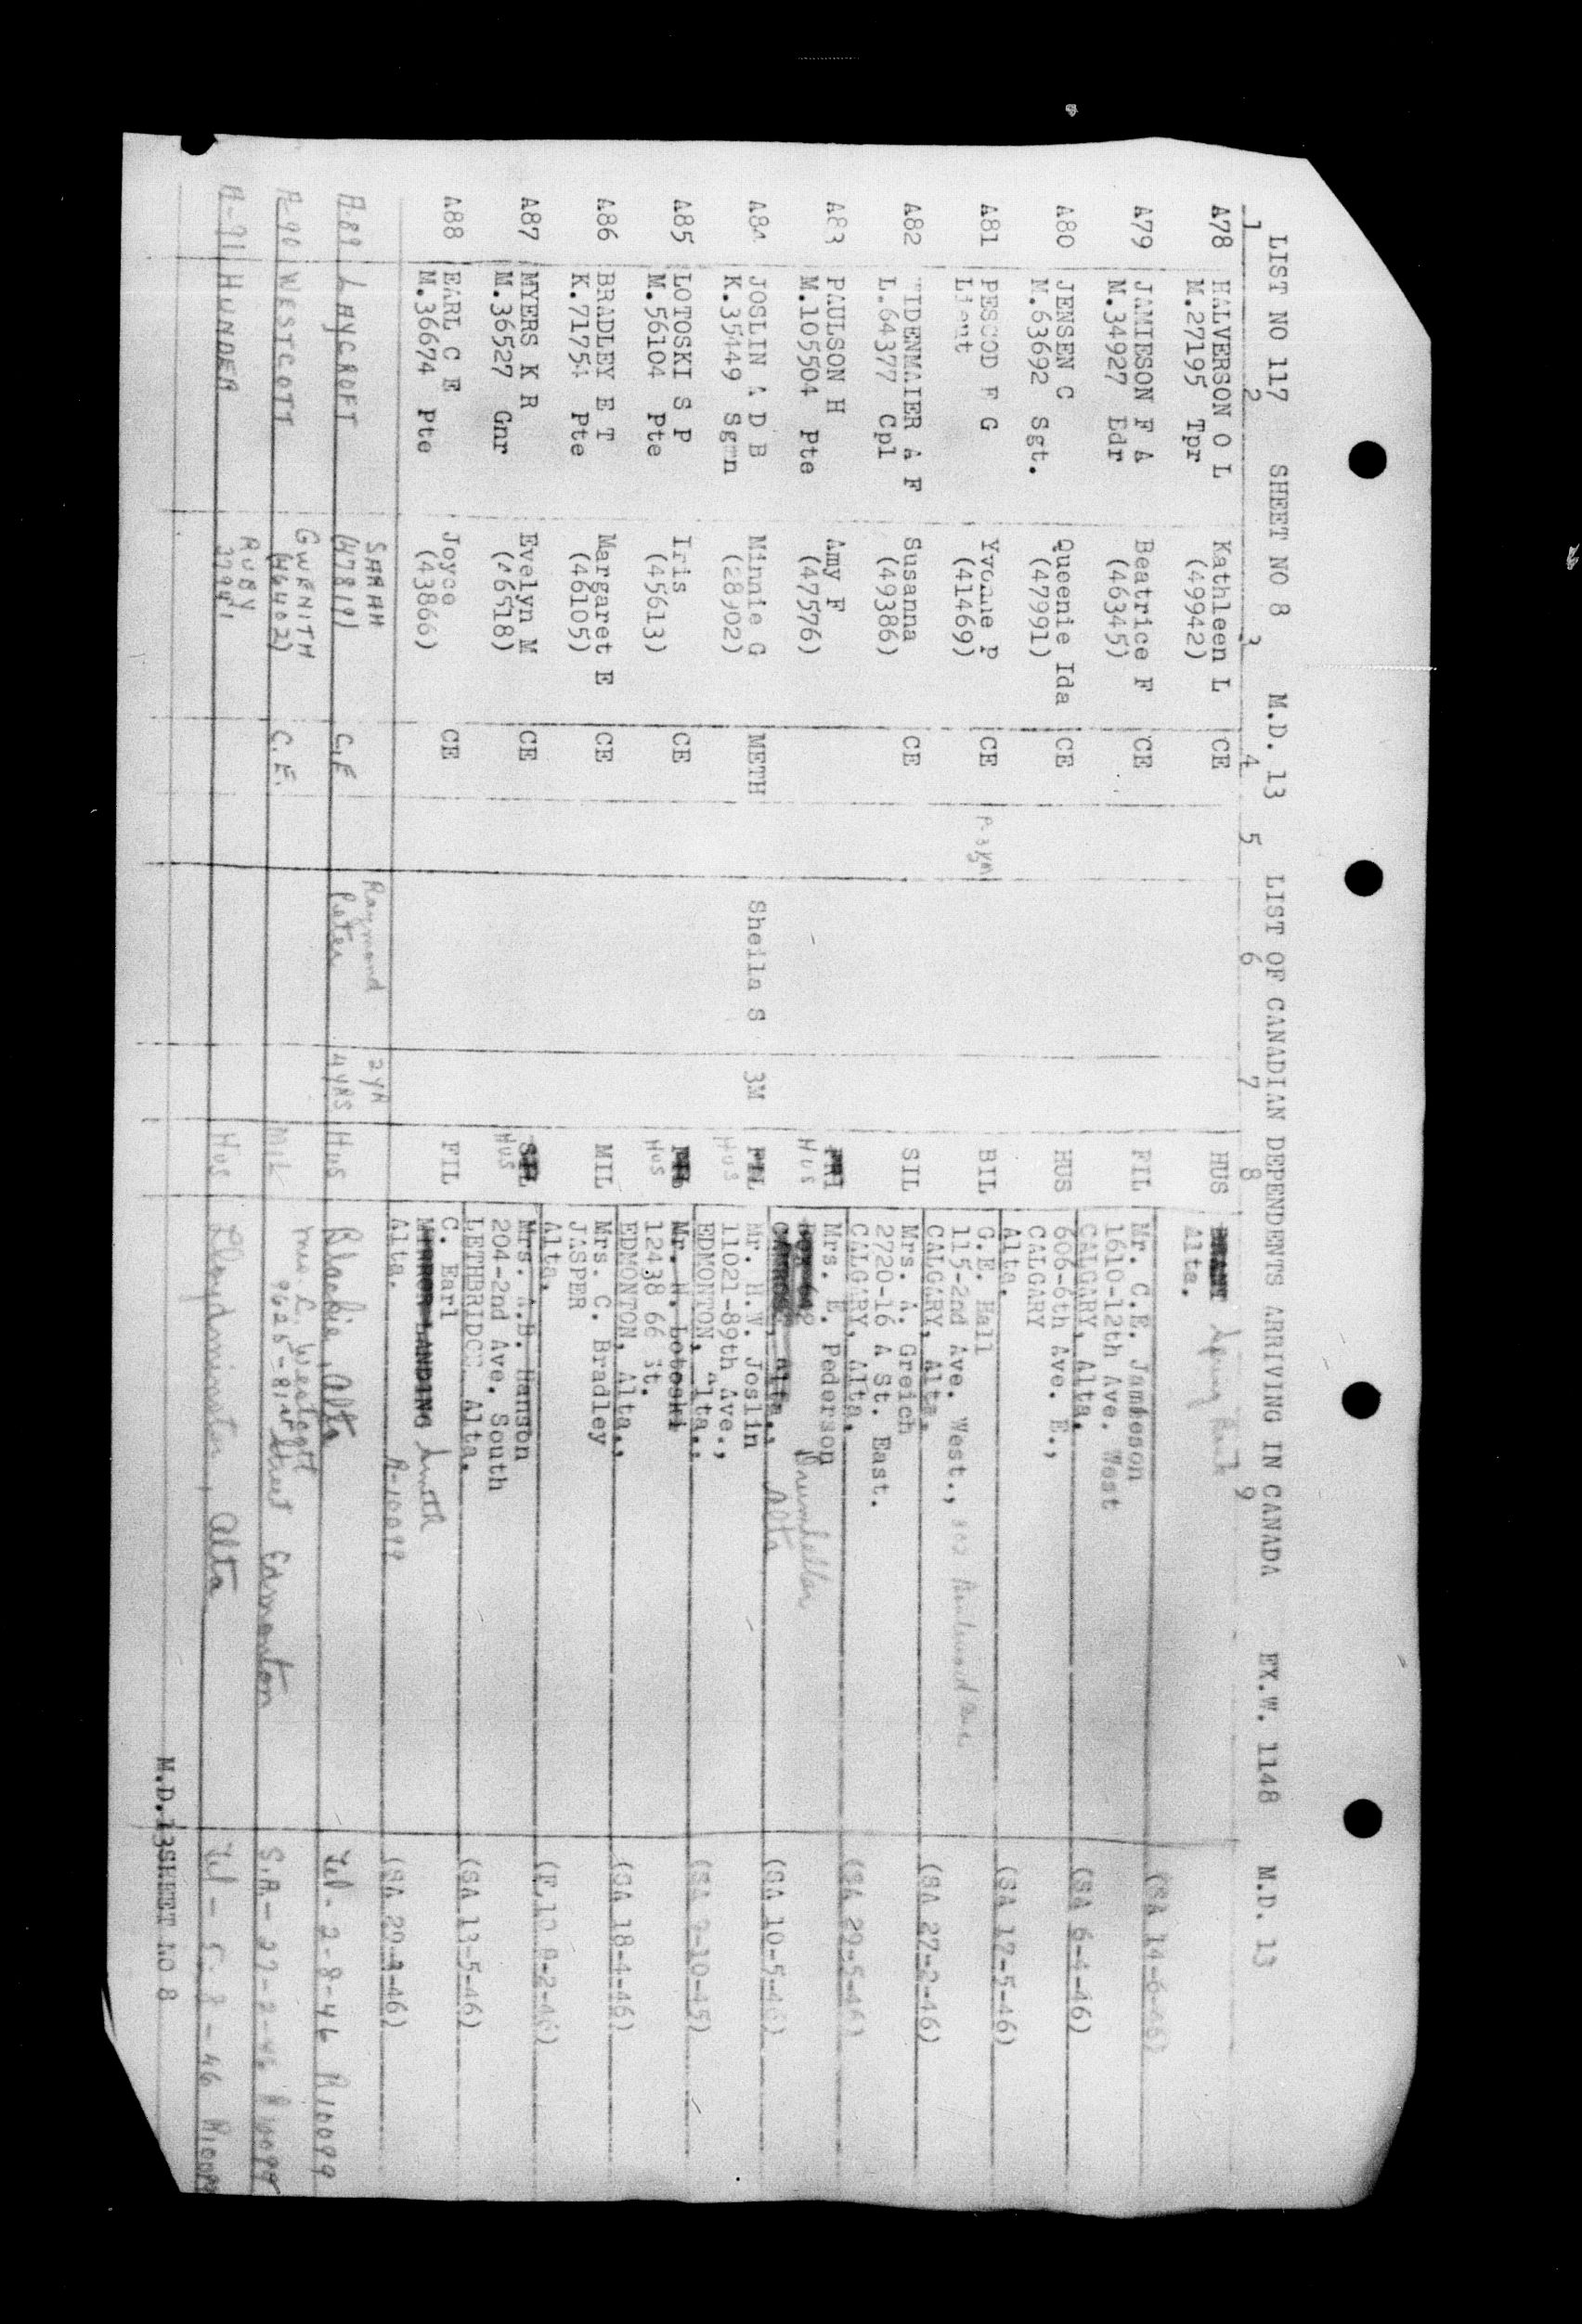 LIST NO 117 SHEET NO 8 M.D. 13 LIST OF CANADIAN DEPENDENTS ARRIVING IN CANADA EX.W. 1148 M.D. 13
1 2 3 4 5 6 7 8 9
A78 HALVERSON O L Kathleen L CE HUS
M.27195 Tpr (49942) Alta.
A79 JAMIESON F A Beatrice F CE FIL Mr. C.E. Jamieson
M.34927 Edr (46345) 1610-12th Ave. West
CALGARY, Alta.
A80 JENSEN C Queenie Ida CE HUS 606-6th Ave. E.,
M.63692 Sgt. (47991) CALGARY
Alta. (SA 6-4-46)
A81 PESCOD F G Yvonne P CE BIL G.E. Hall
Lieut (41469) 115-2nd Ave. West.,
CALGARY, Alta. (SA 17-5-46)
A82 TIDENMAIER A F Susanna CE SIL Mrs. A. Greich
L.64377 Cpl (49386) 2720-16 A St. East.
CALGARY, Alta. (SA 27-2-46)
A83 PAULSON H Amy F Mrs. E. Pederson
M.105504 Pte (47576) HUS Drumheller
Alta (SA 29-5-46)
A84 JOSLIN A D B Minnie G METH Sheila S 3M FIL Mr. H.N. Joslin
K.35449 Sgmn (28902) HUS 11021-89th Ave.,
EDMONTON, Alta., (SA 10-5-46)
A85 LOTOSKI S P Iris CE Mr. N. Lotoski
M.56104 Pte (45613) HUS 12438 66 St.
EDMONTON, Alta.,
A86 BRADLEY E T Margaret E CE MIL Mrs. C. Bradley
K.71754 Pte (46105) JASPER
Alta. (SA 18-4-46)
A87 MYERS K R Evelyn M CE SIL Mrs. A.B. Hanson
M.36527 Gnr (46518) HUS 204-2nd Ave. South
LETHBRIDGE Alta.
A88 EARL C E Joyce CE FIL C. Earl
M.36674 Pte (43866) MIRROR LANDING Smith
Alta. A-10099 (SA 13-5-46)
(SA 29-3-46)
A-89 LAYCROFT SARAH C.E Raymond 2YR
(47819) Peter 4YRS HUS Blackie, Alta Tel- 2-8-46 A10099
A-90 WESTCOTT GWENITH C.E. MIL Mrs. L. Westcott
(46403) 9625-81st Street Edmonton S.A- 27-2-46 A10099
A-91 HUNDER RUBY HUS Lloydminster, Alta
M.D.13SHEET NO 8